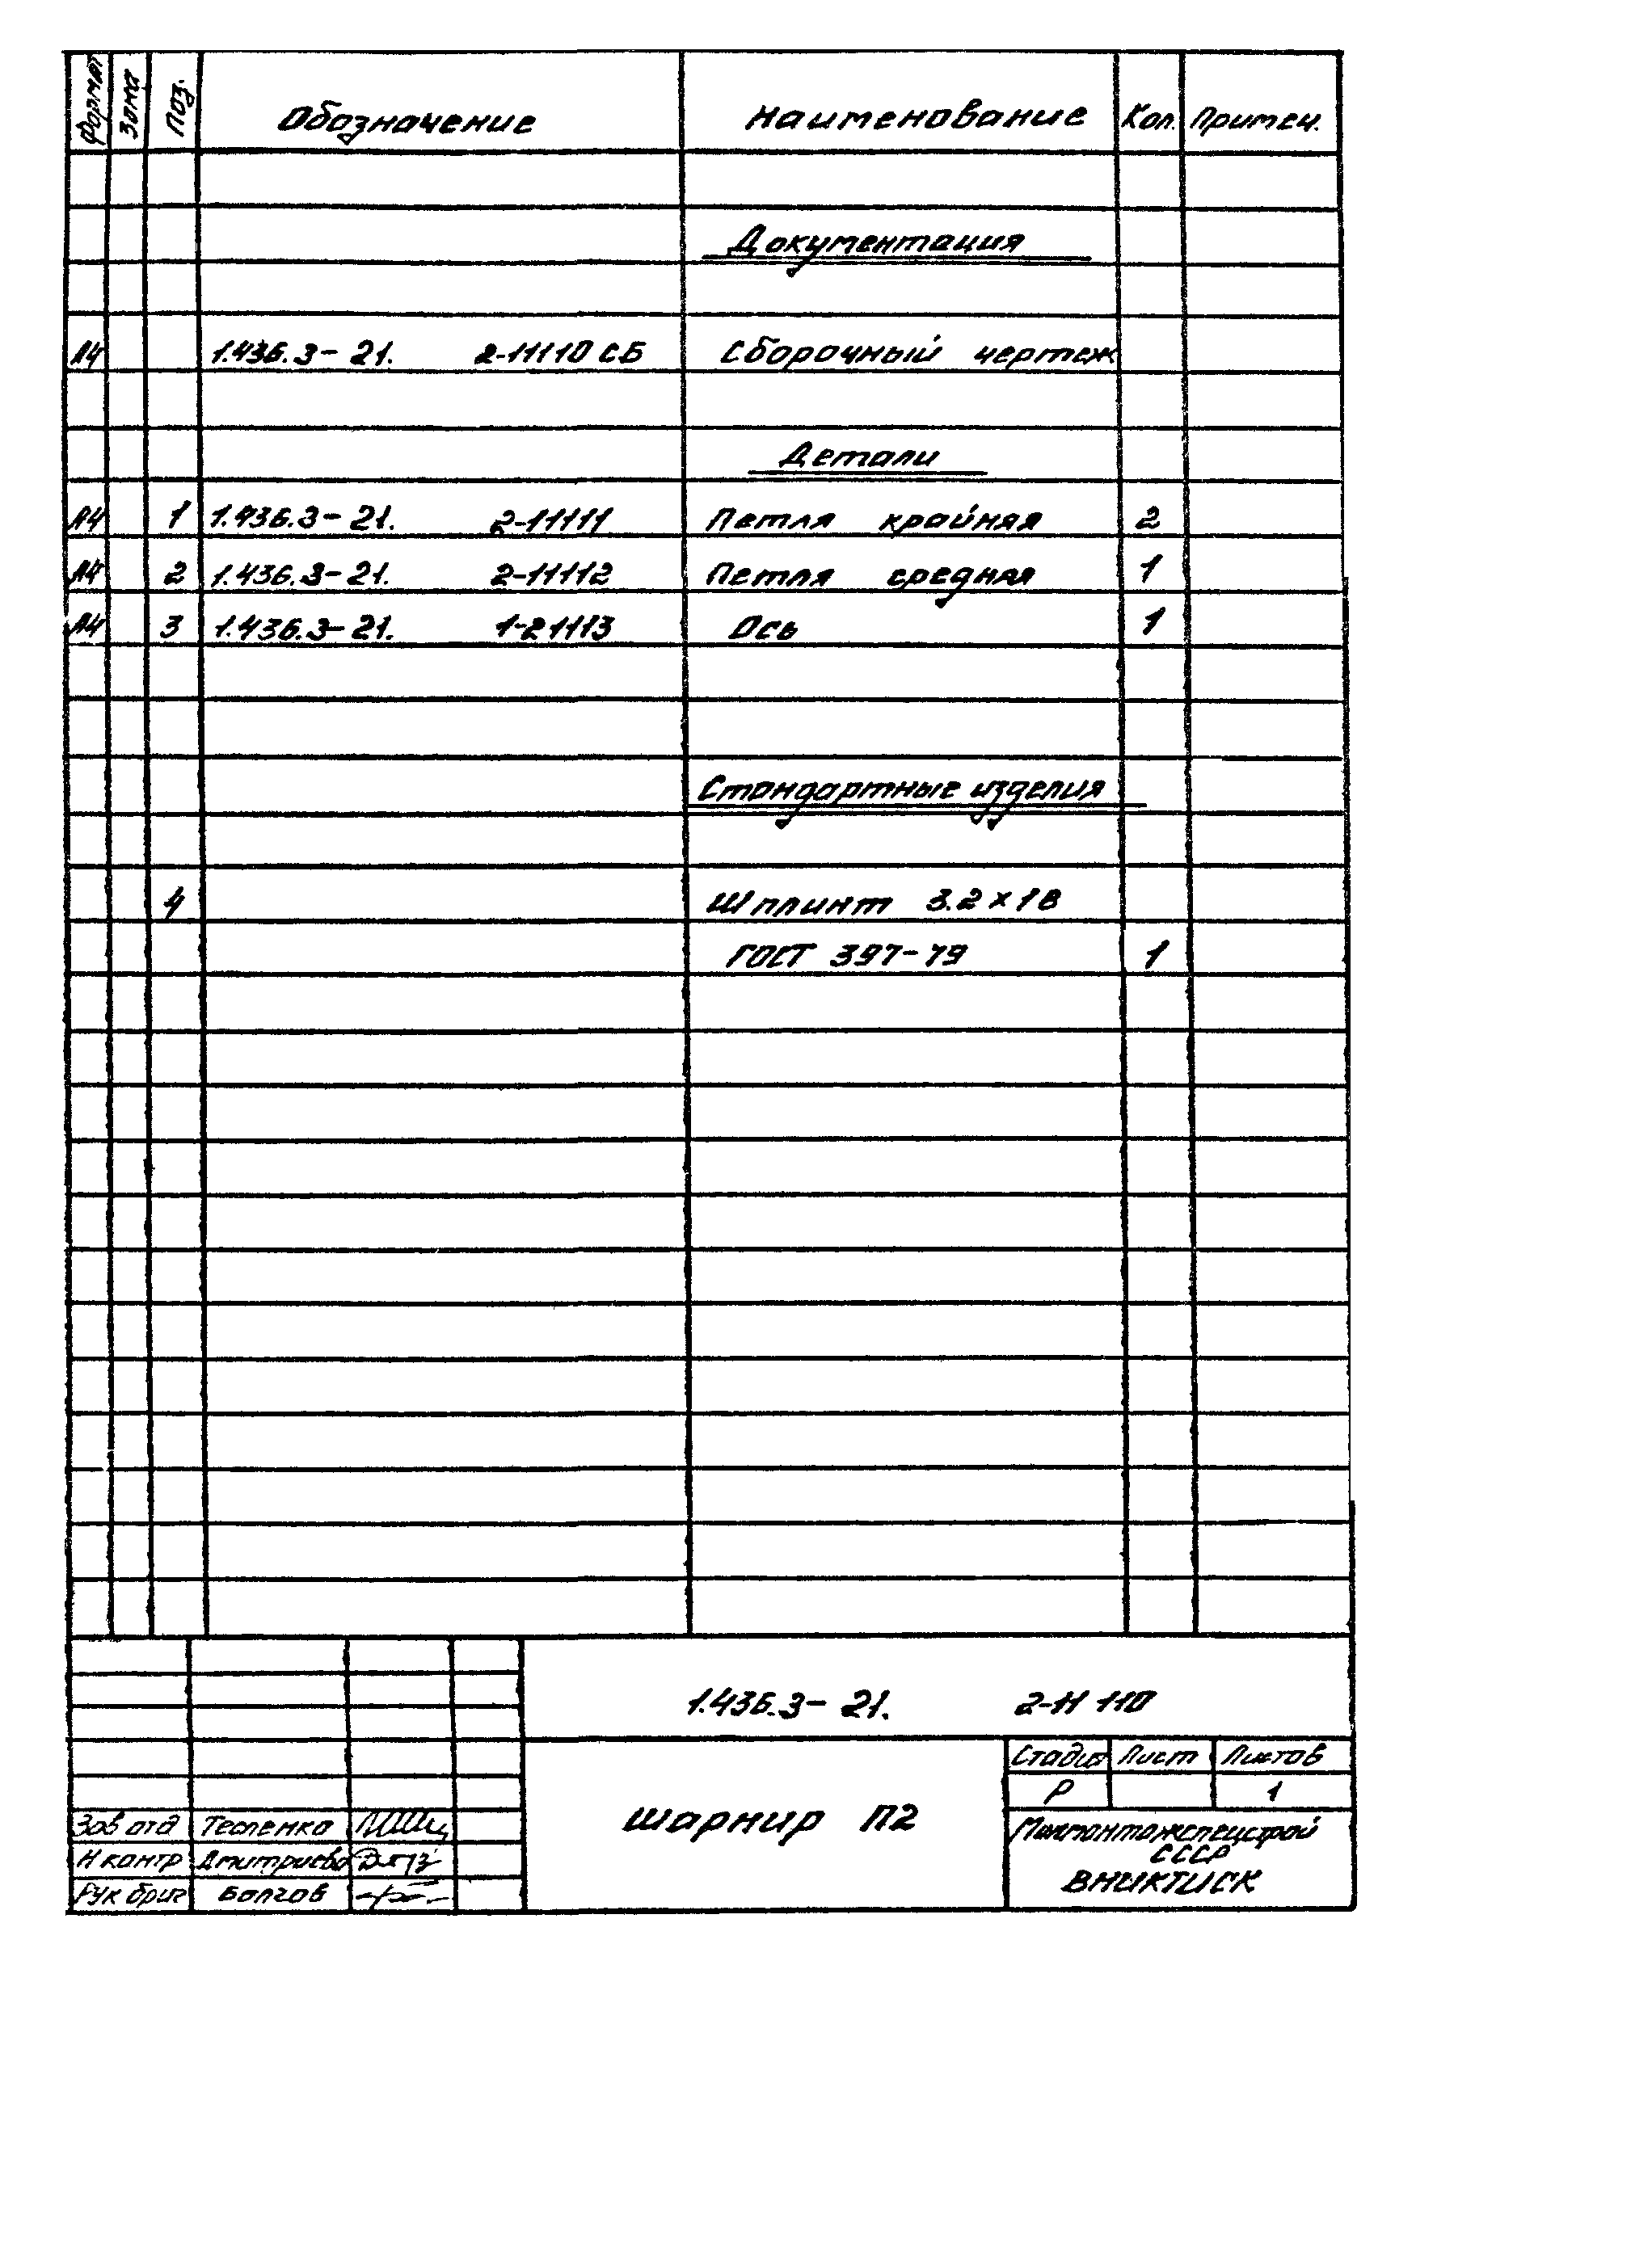 Формат Зона Поз. Обозначение Наименование Кол. Примеч.
Документация
А4 1.436.3-21. 2-11110 СБ Сборочный чертеж
Детали
А4 1 1.436.3-21. 2-11111 Петля крайняя 2
А4 2 1.436.3-21. 2-11112 Петля средняя 1
А4 3 1.436.3-21. 1-21113 Ось 1
Стандартные изделия
4 Шплинт 3.2×18
ГОСТ 397-79 1
1.436.3-21. 2-11110
Стадия Лист Листов
Р 1
Шарнир П2
Зав отд Тесленко
Н контр Дмитриева
Рук бриг Болгов
Минмонтажспецстрой
СССР
ВНИКТИСК